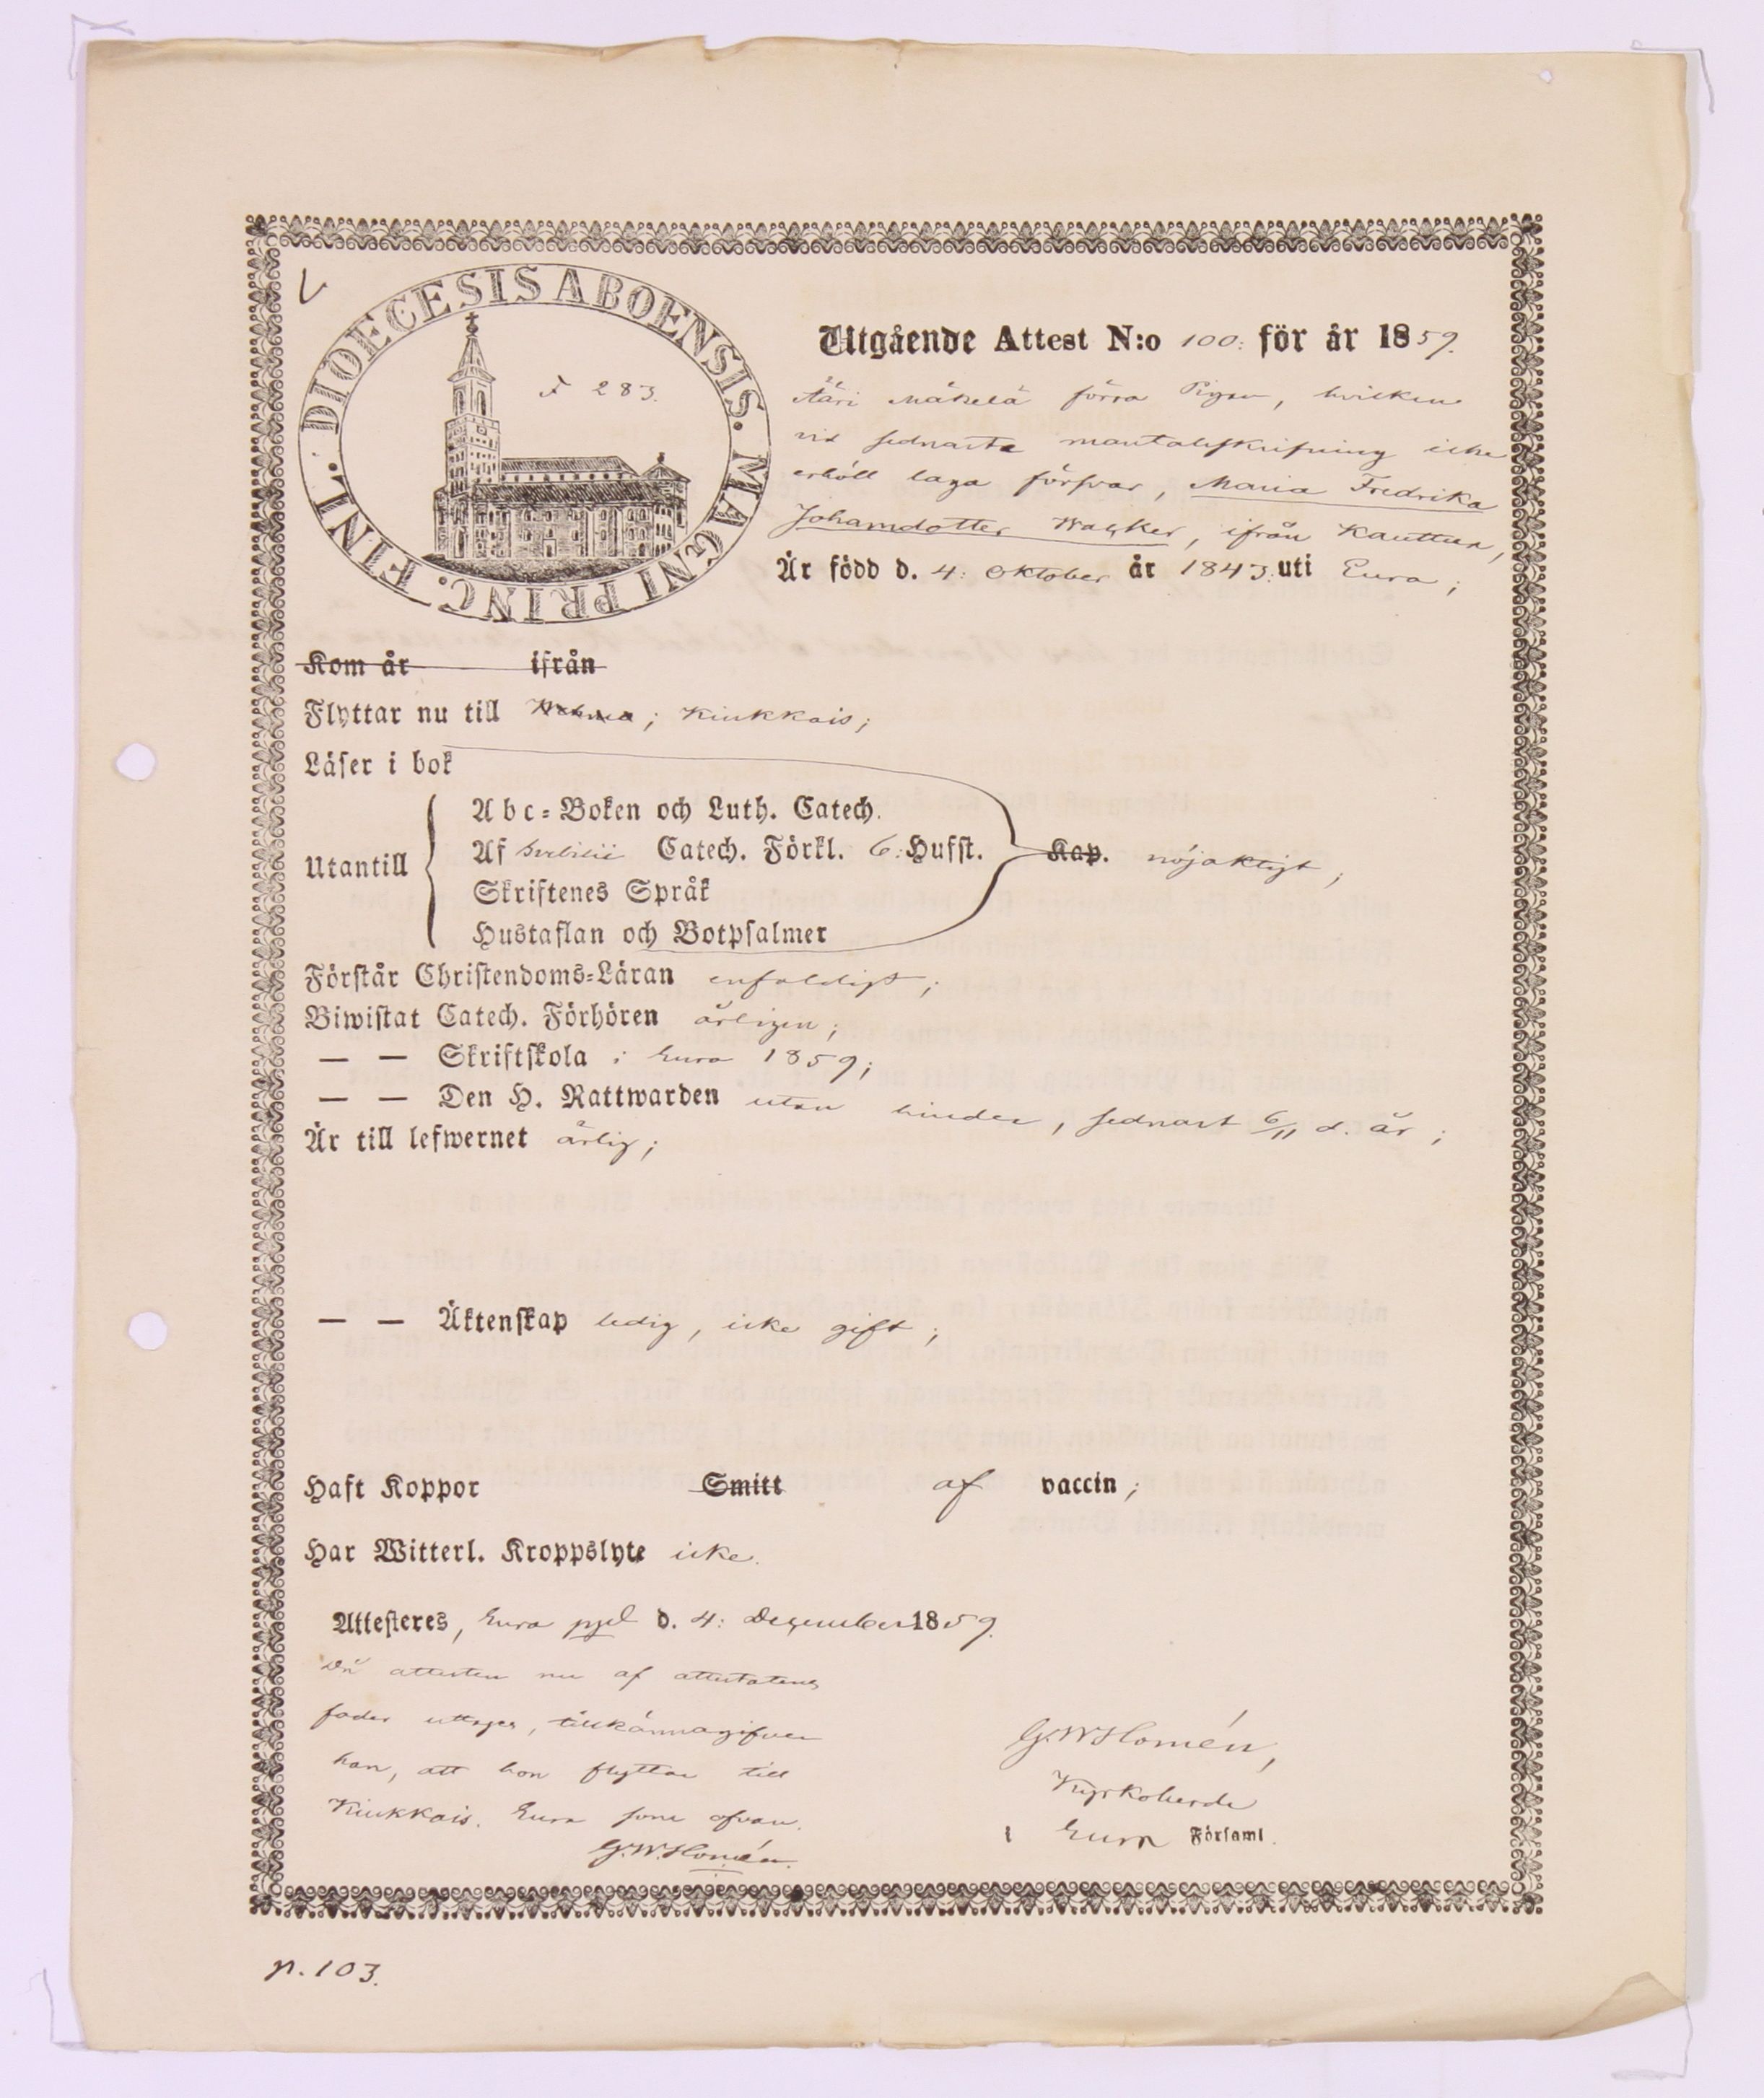 DIOECESIS ABOENSIS. MAGNI PRINC. FINL.
F 283.
Utgående Attest N:o 100: för år 1859.
Ääri Mäkelä förra Pigan, hvilken
vid sednaste mantalsskrifning icke
erhöll laga försvar, Maria Fredrika
Johansdotter Wacker, ifrån Kauttua,
Är född d. 4: Oktober år 1843: uti Eura;
Kom år ifrån
Flyttar nu till ; Kiukkais;
Läser i bok
Abc-Boken och Luth. Catech.
Utantill
Af Svebilii Catech. Förkl. 6: Hufst. Kap. nöjaktigt;
Skriftenes Språk
Hustaflan och Botpsalmer
Förstår Christendoms-Läran enfaldigt;
Biwistat Catech. Förhören årligen;
— — Skriftskola i Eura 1859;
— — Den H. Nattwarden utan hinder, sednast 6/11 d. år;
Är till lefwernet ärlig;
— — Äktenskap ledig, icke gift;
Haft Koppor Smitt af vaccin;
Har Witterl. Kroppslyte icke.
Attesteres, Eura pgd d. 4: December 1859.
Då attesten nu af attestatens
fader uttages, tillkännagifver
han, att hon flyttar till
Kiukkais. Eura som ofvan.
G.W.Homén.
G.W.Homén,
Kyrkoherde
i Eura Församl.
p. 103.